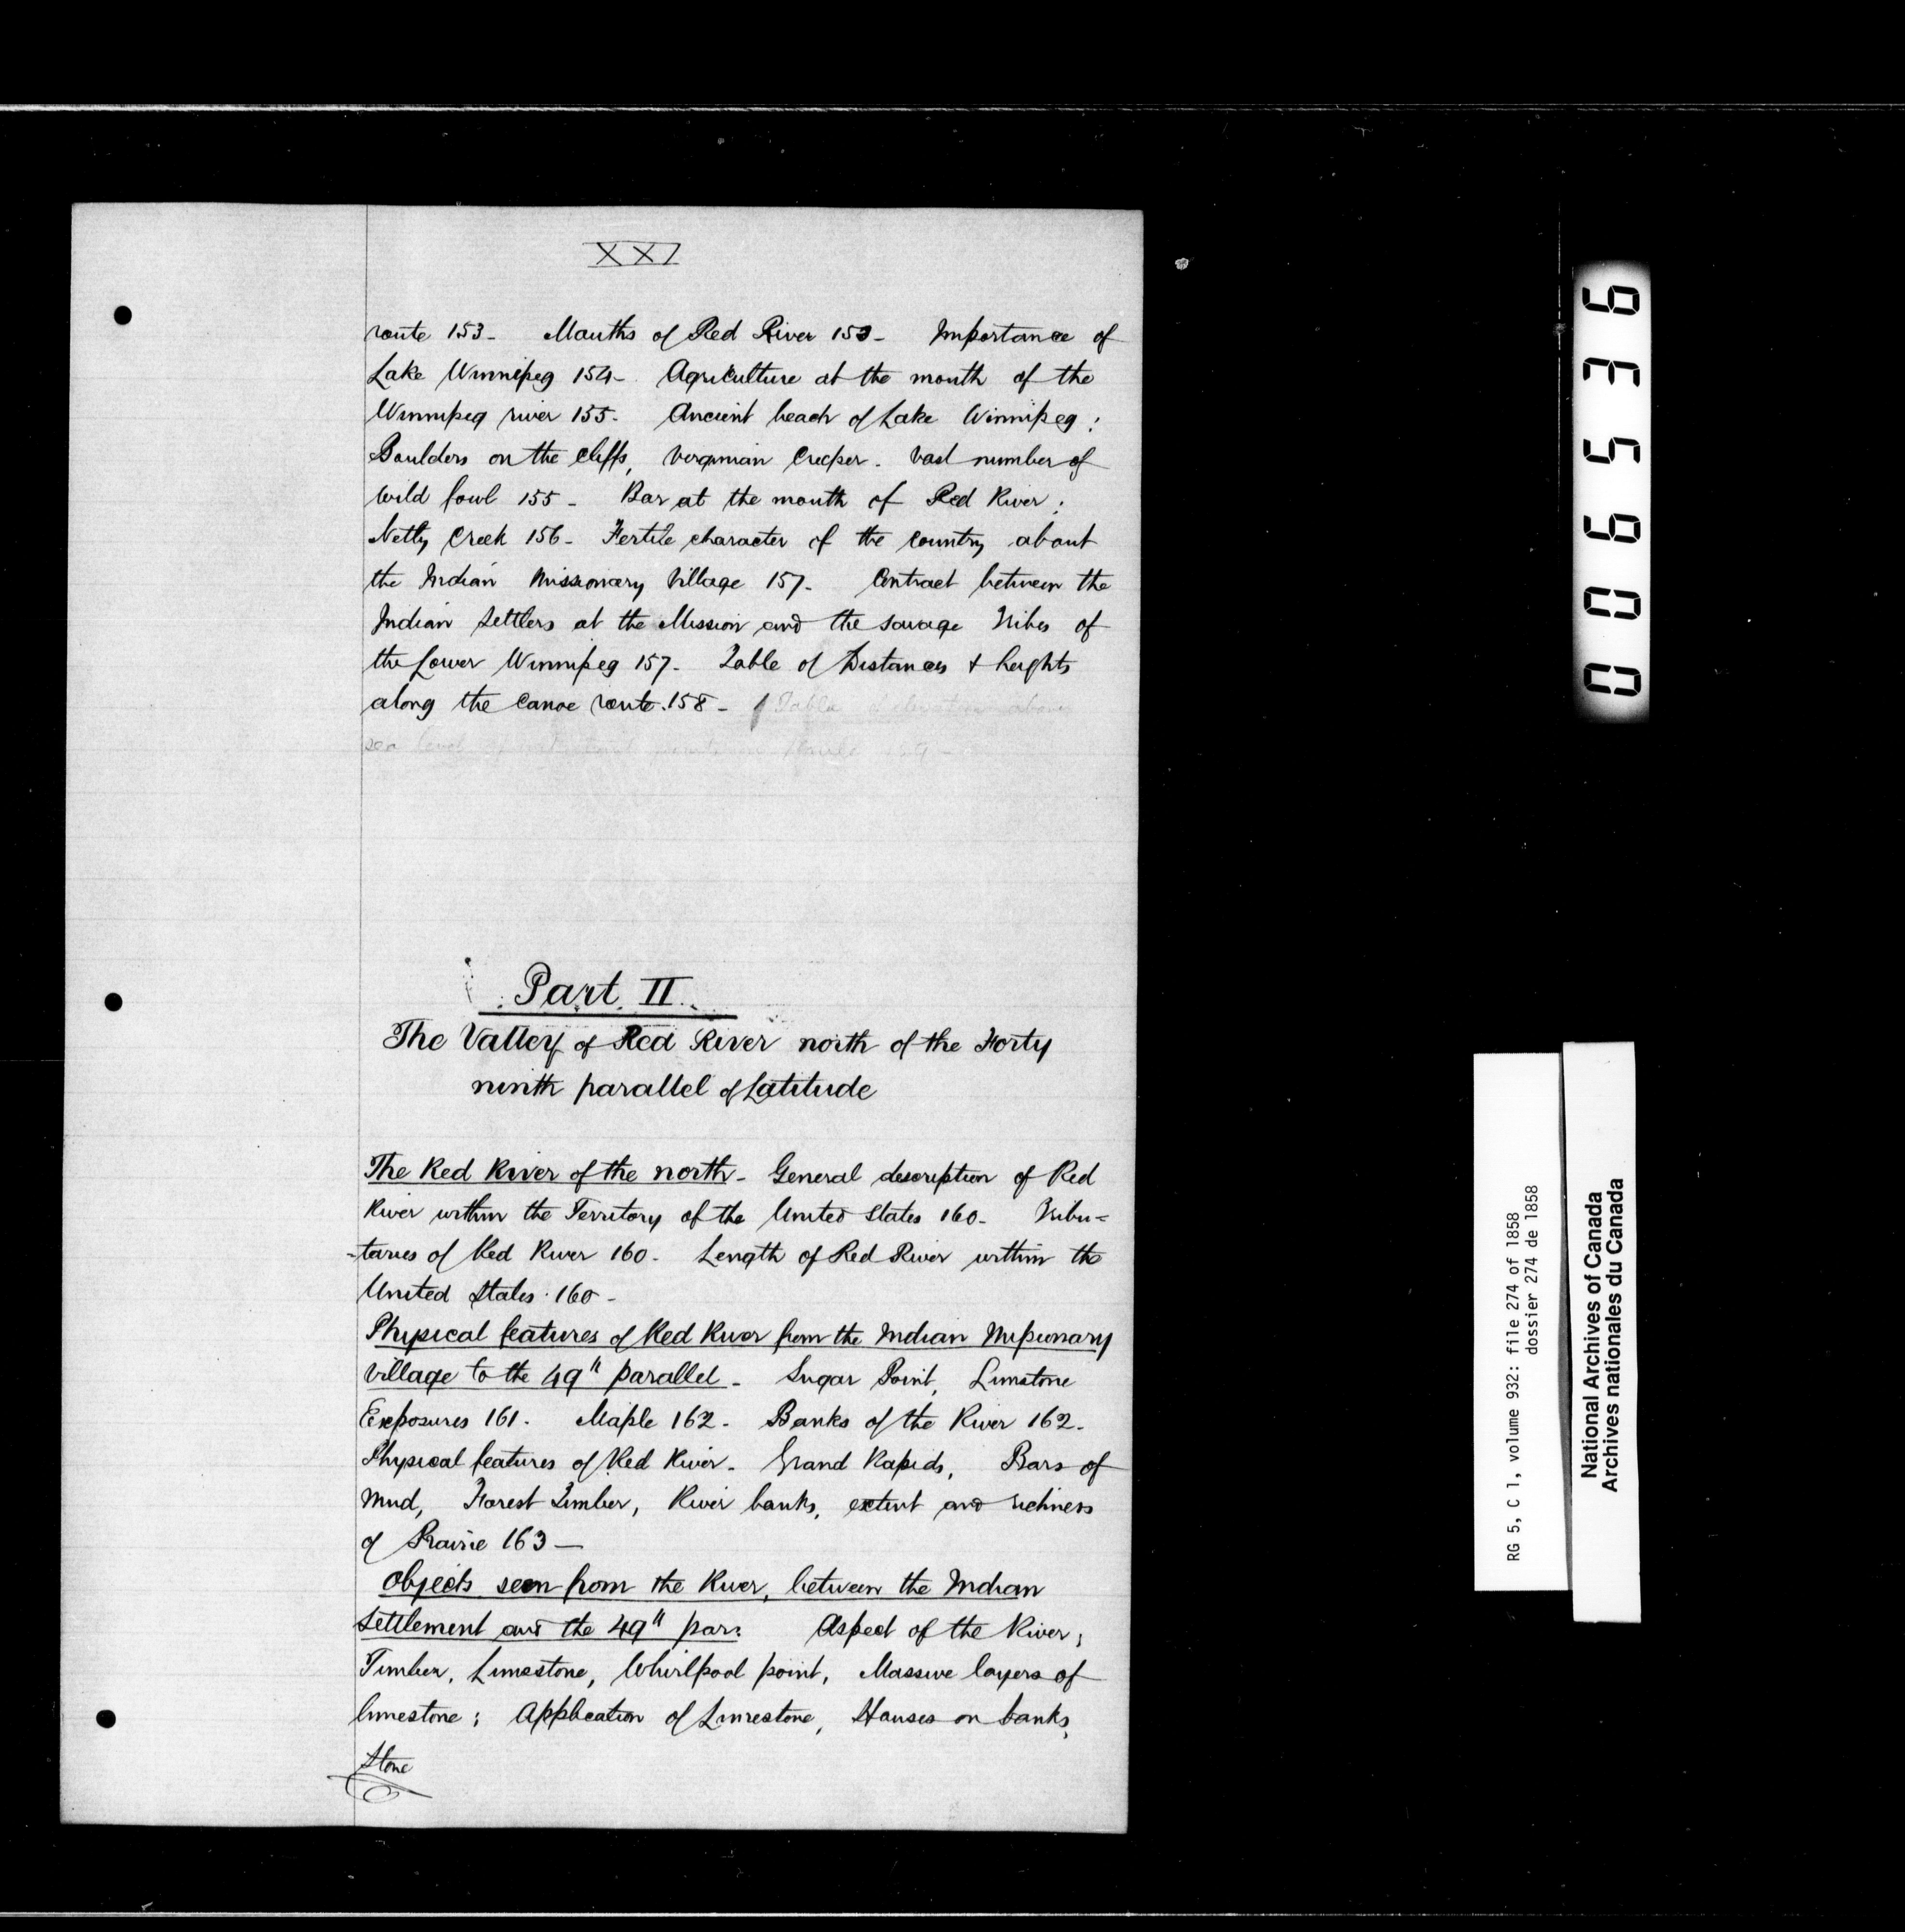 XXI
route 153- Mouths of Red River 153- Importance of
Lake Winnipeg 154- Agriculture at the mouth of the
Winnipeg river 155- Ancient beach of Lake Winnipeg;
Boulders on the Cliffs, Virginian Creeper. Vast number of
wild fowl 155- Bar at the mouth of Red River;
Netly Creek 156- Fertile character of the country about
the Indian Missionary Village 157- Contract between the
Indian Settlers at the Mission and the savage Tribes of
the Lower Winnipeg 157- Table of Distances & heights
along the Canoe route. 158- Table elevation above
sea level of 159-
Part II
The Valley of Red River north of the Forty
ninth parallel of Latitude
The Red River of the north- General description of Red
River within the Territory of the United States 160- Tribu=
-taries of Red River 160- Length of Red River within the
United States 160-
Physical features of Red River from the Indian Missionary
Village to the 49th parallel- Sugar Point, Limestone
Exposures 161- Maple 162- Banks of the River 162-
Physical features of Red River- Grand Rapids, Bars of
Mud, Forest Timber, River banks, extent and richness
of Prairie 163—
Objects seen from the River, between the Indian
Settlement and the 49th par: Aspect of the River;
Timber, Limestone, Whirlpool point, Massive layers of
limestone; Application of Limestone, Houses on banks,
Stone
006536
RG 5, C 1, volume 932: file 274 of 1858
dossier 274 de 1858
National Archives of Canada
Archives nationales du Canada